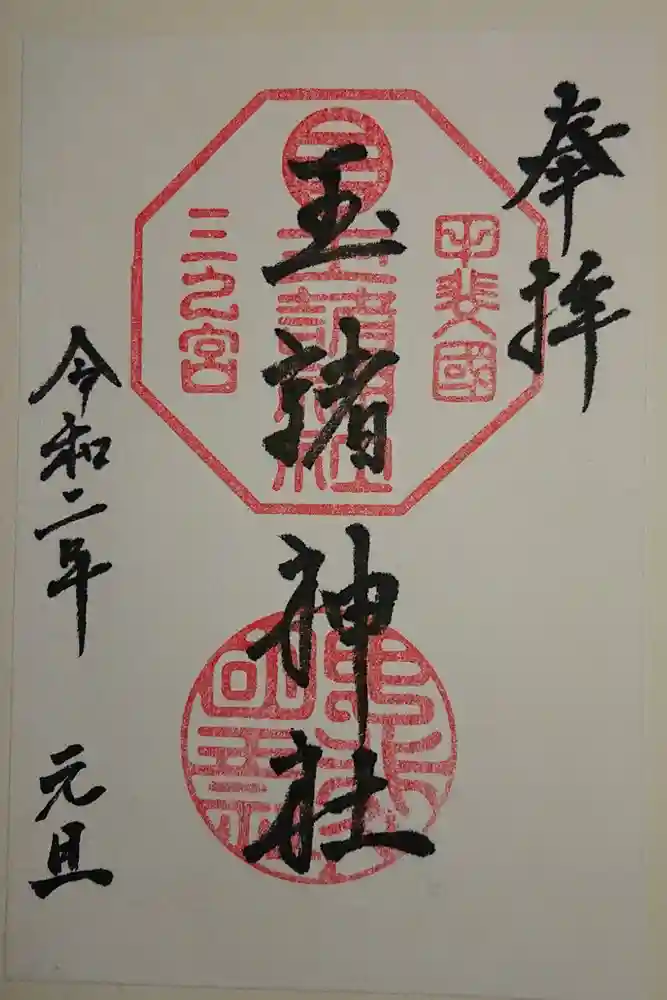 奉拝
甲斐國
玉諸神社
玉諸神社
三之宮
令和二年 元旦